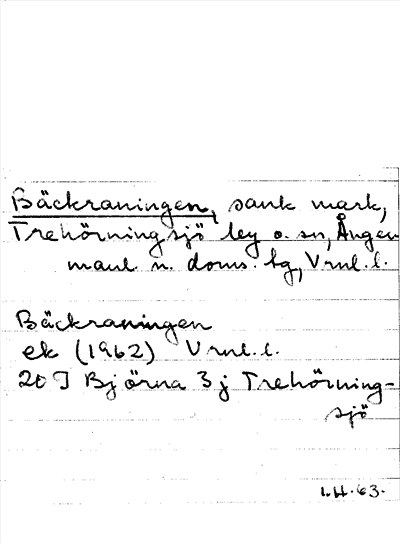 Bäckraningen, sank mark,
Trehörningsjö by o. sn, Ånger
manl. n. doms. tg, Vrnl. l.
Bäckraningen
ek (1962) Vrnl. l.
20 I Björna 3 j Trehörning-
sjö
I.H. 63.